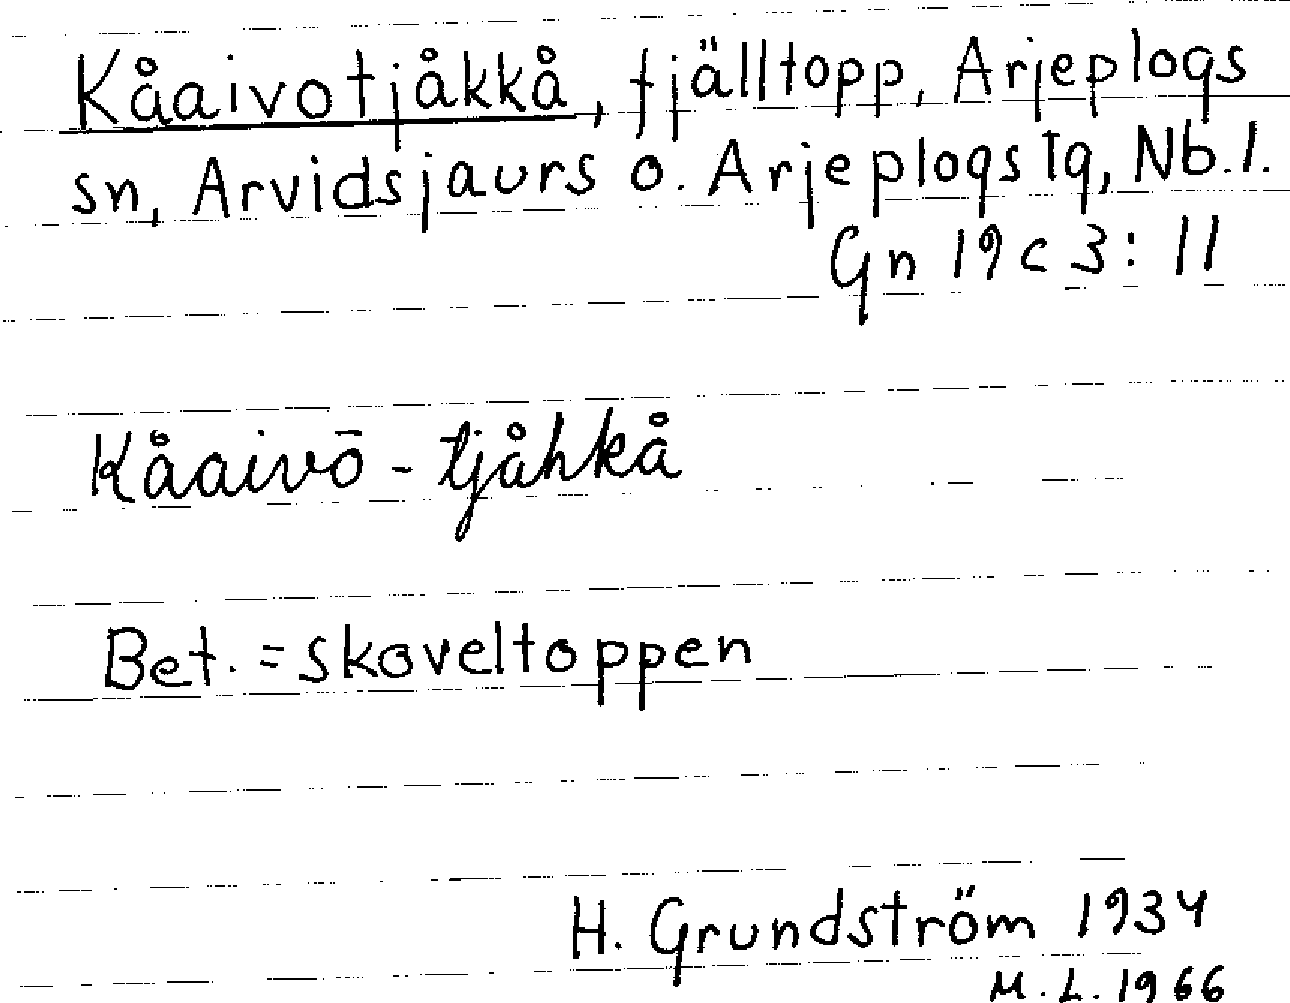 Kåaivotjåkkå, fjälltopp, Arjeplogs
sn, Arvidsjaurs o. Arjeplogs tg, Nb.l.
Gn 19c3:11
Kåaivō-tjåhkå
Bet. = skoveltoppen
H. Grundström 1934
M.L. 1966